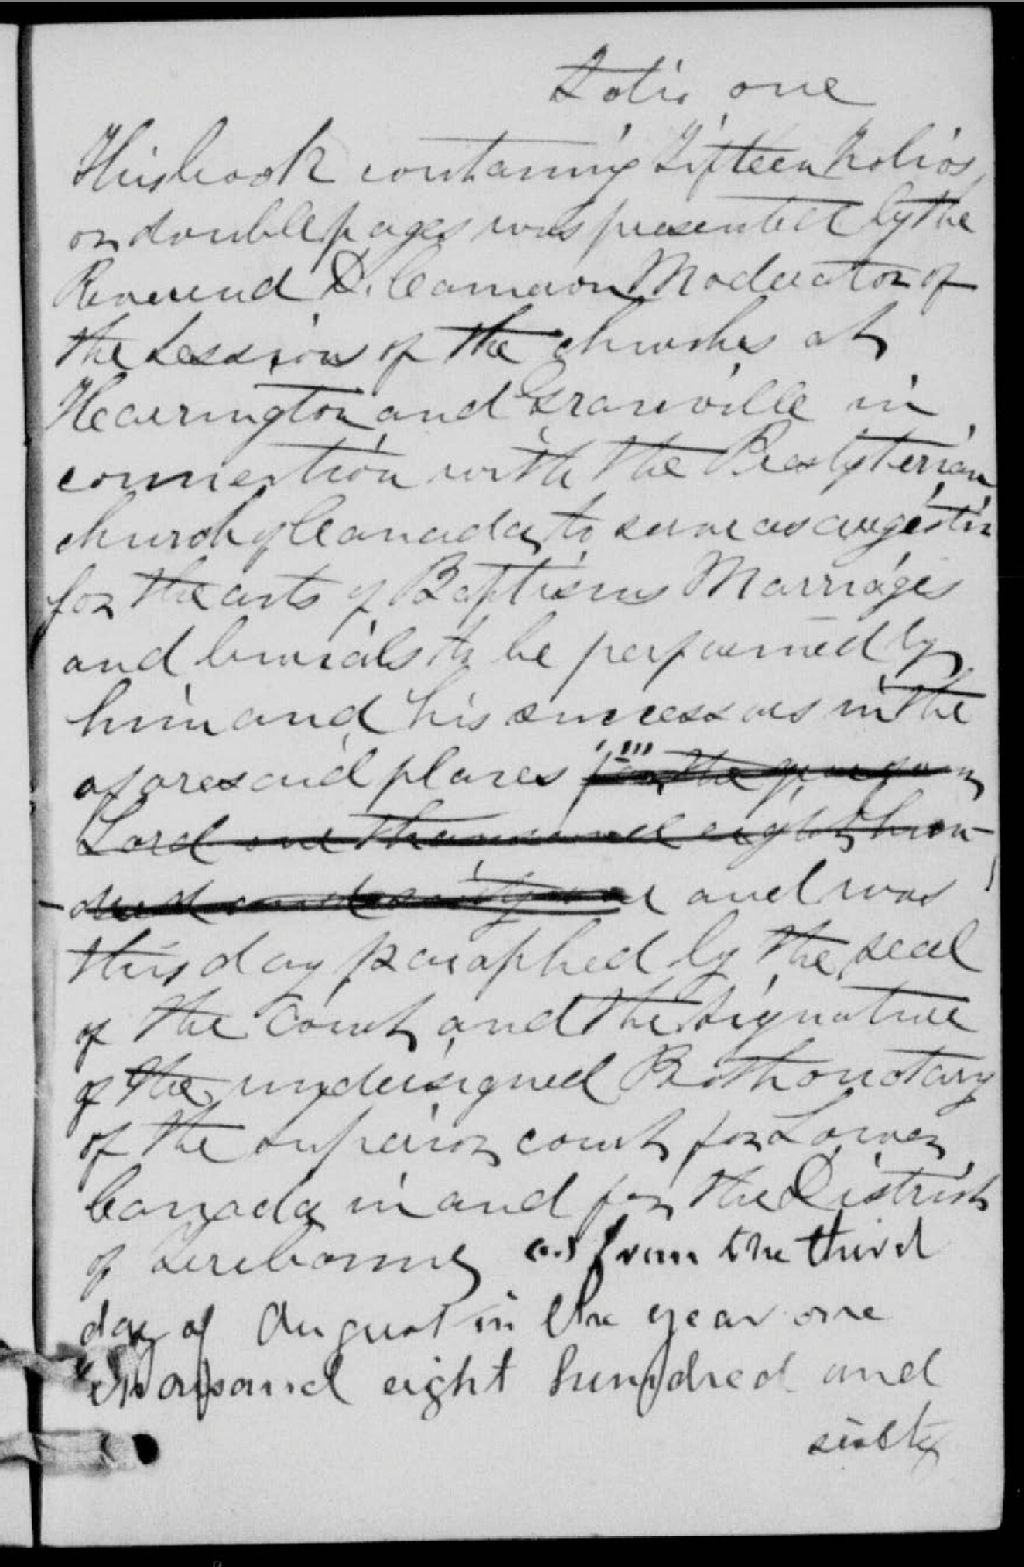 Folio one
This book containing Fifteen Folios
or double pages was presented by the
Reverend D. Cameron Moderator of
the Session of the churches at
Hearrington and Granville in
connection with the Presbyterian
church of Canada, to serve as a register
for the acts of Baptisms Marriages
and burials to be performed by
him and his successors in the
aforesaid places for the year
Lord one thousand eight hun-
dred and sixty one and was
this day paraphed by the seal
of the Court and the Signature
of the undersigned Prothonotary
of the Superior court for Lower
Canada in and for the District
of Terrebonne as from the third
day of August in the year one
thousand eight hundred and
sixty